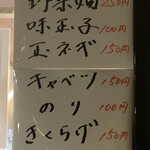 野菜畑 250円
味玉子 100円
玉ネギ 150円
キャベツ 150円
のり 100円
きくらげ 150円